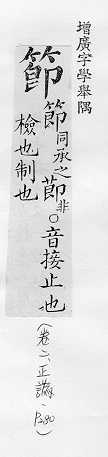 增廣字學舉隅
節
節同承之莭非○音接止也
檢也制也
(卷二、正譌、P280)